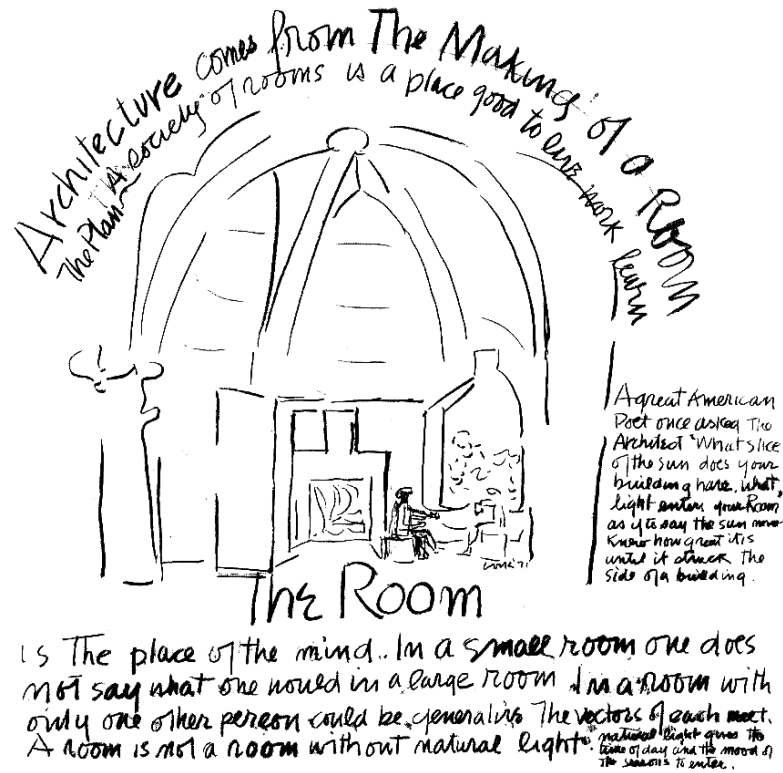 Architecture comes from The Making of a Room
The Plan A society of rooms is a place good to live work learn
A great American
Poet once asked The
Architect "What slice
of the sun does your
building have, what
light enters your Room
as if to say the sun never
knew how great it is
until it struck the
side of a building.
The Room
is The place of the mind. In a small room one does
not say what one would in a large room In a room with
only one other person could be generative The vectors of each meet.
A room is not a room without natural light natural light gives the
time of day and the mood of
the seasons to enter.